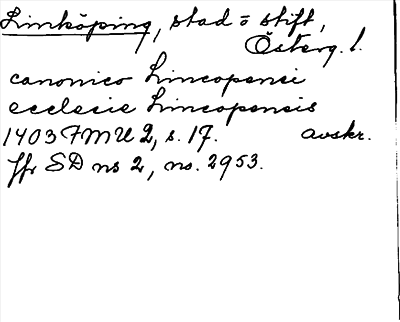 Linköping, stad o stift,
Österg. l.
canonico Lincopensi
ecclesie Lincopensis
1403 FMU 2, s. 17. avskr.
Jfr SD ns 2, no. 2953.